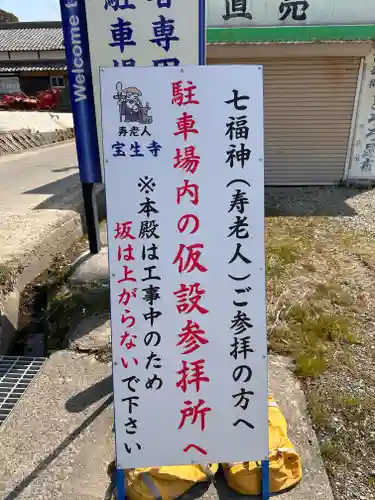 七福神(寿老人)ご参拝の方へ
駐車場内の仮設参拝所へ
※本殿は工事中のため
坂は上がらないで下さい
寿老人
宝生寺
Welcome t
駐
専
車
場
用
直売